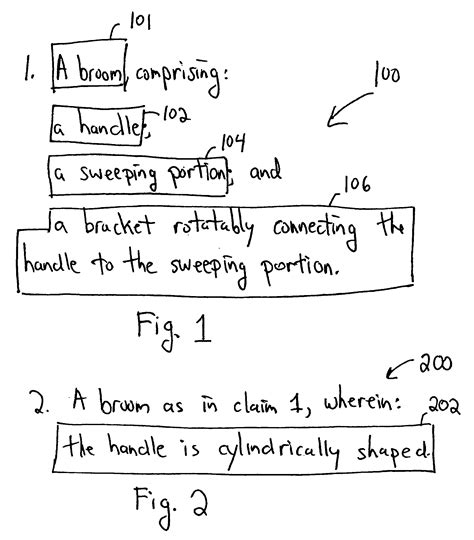 101
1. A broom, comprising:
100
a handle; 102
104
a sweeping portion; and
106
a bracket rotatably connecting the
handle to the sweeping portion.
Fig. 1
200
2. A broom as in claim 1, wherein:
202
the handle is cylindrically shaped.
Fig. 2